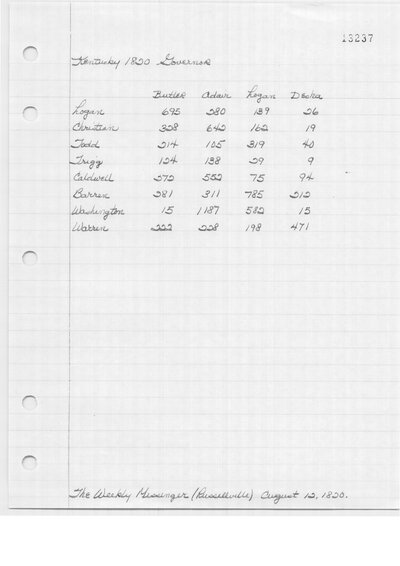 13237
Kentucky 1820 Governor
Butler Adair Logan Desha
Logan 695 280 139 26
Christian 328 642 162 19
Todd 214 105 319 40
Trigg 124 138 29 9
Caldwell 272 552 75 94
Barren 281 311 785 212
Washington 15 1187 582 15
Warren 222 228 198 471
The Weekly Messenger (Russellville) August 12, 1820.